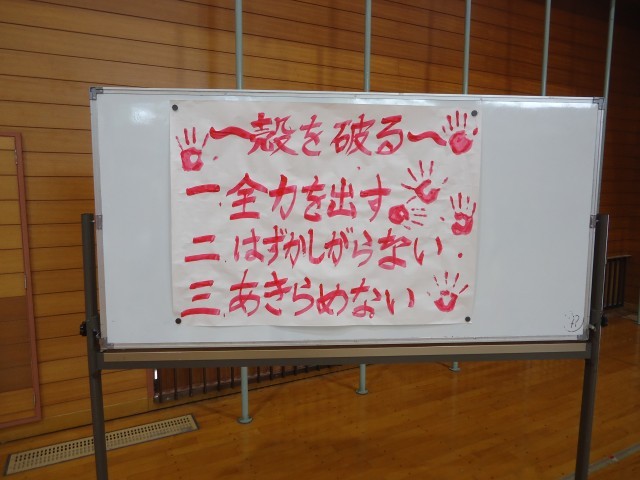 ～殻を破る～
一.全力を出す.
二.はずかしがらない.
三.あきらめない